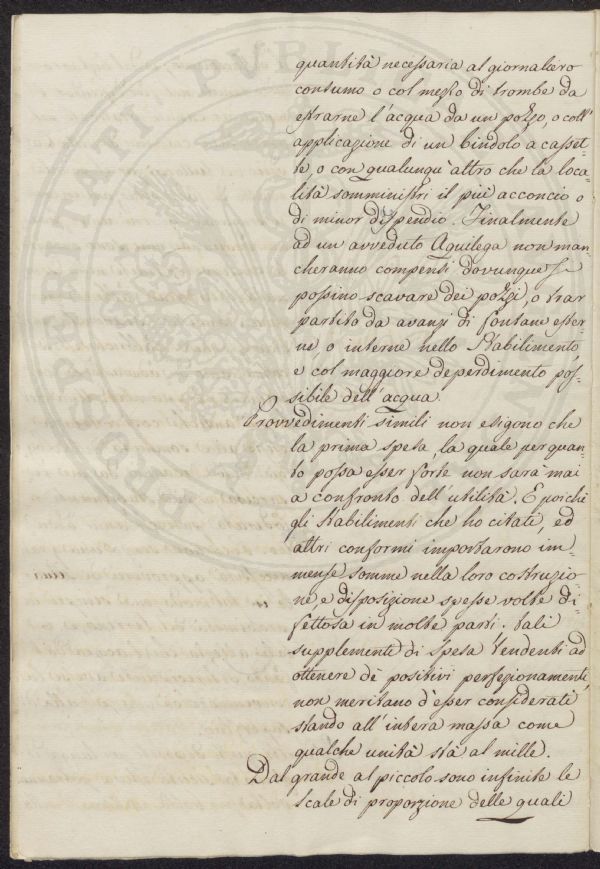 quantità necessaria al giornaliero
consumo o col mezzo di trombe da
estrarne l'acqua da un pozzo, o coll'
applicazione di un bindolo a casset-
te, o con qualunqu' altro che la loca-
lità somministri il più acconcio o
di minor dispendio. Finalmente
ad un avveduto Aquilega non man-
cheranno compensi dovunque si
possino scavare dei pozzi, o trar
partito da avanzi di fontane ester-
ne, o interne nello Stabilimento,
e col maggiore deperdimento pos-
sibile dell'acqua.
Provvedimenti simili non esigono che
la prima spesa, la quale per quan-
to possa esser forte non sarà mai
a confronto dell'utilità. E poichè
gli Stabilimenti che ho citati, ed
altri conformi importarono im-
mense somme nella loro costruzio-
ne, e disposizione spesse volte di-
fettosa in molte parti. tali
supplementi di spesa tendenti ad
ottenere dè positivi perfezionamenti,
non meritano d'esser considerati
stando all'intera massa come
qualche unità stà al mille.
Dal grande al piccolo sono infinite le
scale di proporzione delle quali
PROSPERITATI PUBLI